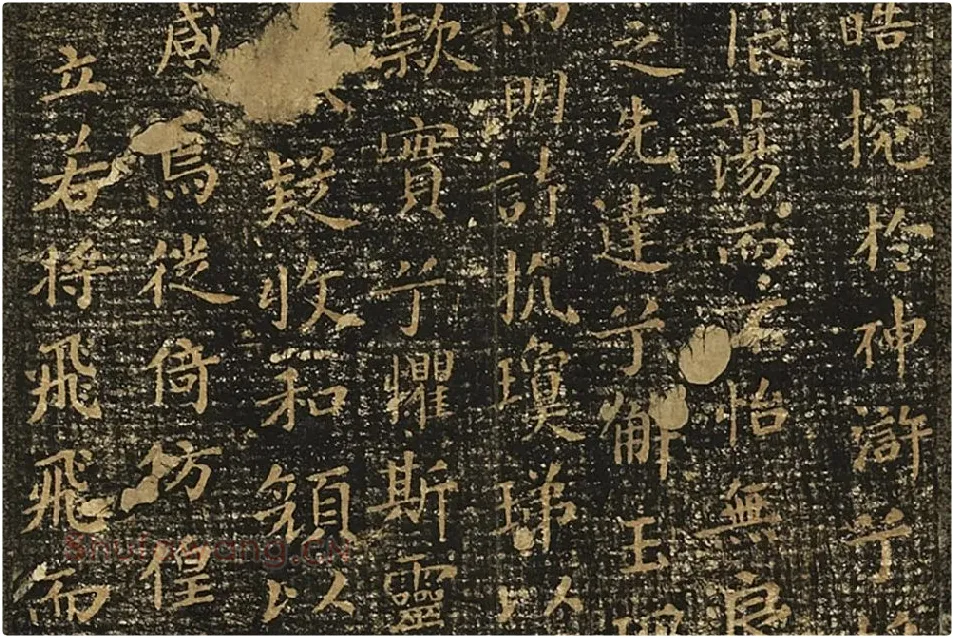 皓捥於神滸兮
振蕩而不怡無良
之先達兮解玉
明詩抗瓊珶以
款實兮懼斯靈
疑收和顏以
感焉徙倚彷徨
立若將飛飛而
Shufawang.CN